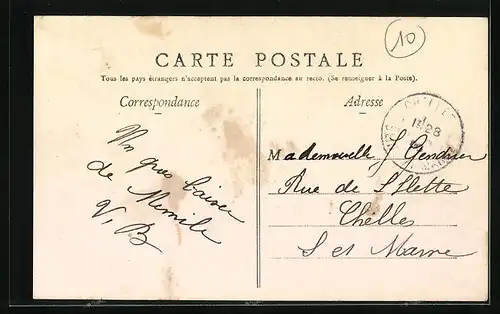 10
CARTE POSTALE
Tous les pays étrangers n'acceptent pas la correspondance au recto. (Se renseigner à la Poste).
Correspondance
Adresse
CHELLES
Un gros baiser
de Mimile
V, B
Mademoiselle J Gendrier
Rue de
Chelles
S et Marne